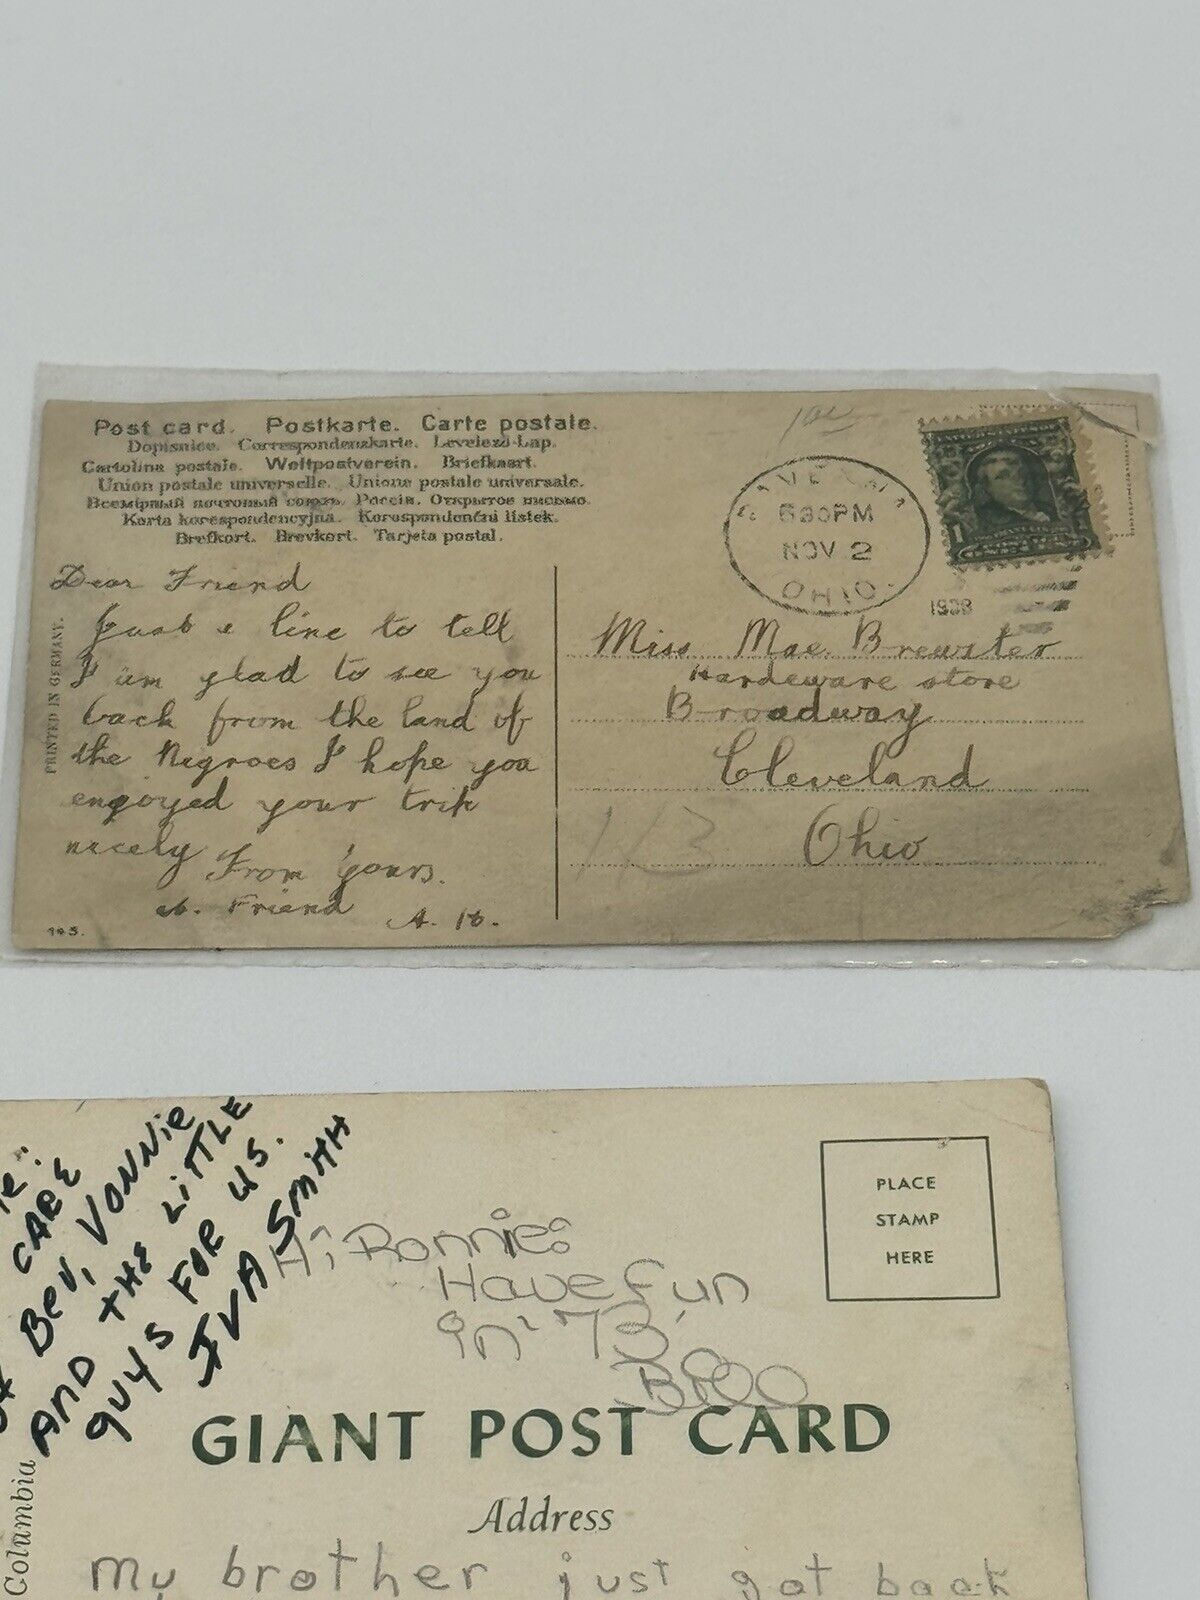 Post card. Postkarte. Carte postale.
Dopisnice. Correspondenzkarte. Levelezö-Lap.
Cartolina postale. Weltpostverein. Briefkaart.
Union postale universelle. Unione postale universale.
Всемірный почтовый союзъ. Россія. Открытое письмо.
Karta korespondencyjna. Korespondenční lístek.
Brefkort. Brevkort. Tarjeta postal.
PRINTED IN GERMANY.
Dear Friend
Just a line to tell
I am glad to see you
back from the land of
the Nigroes I hope you
engoyed your trip
nicely From yours.
Friend A. H.
145.
RAVENNA
630PM
NOV 2
OHIO
1908
1
Miss Mae Brewster
Hardeware store
Broadway
Cleveland
Ohio
113
CARE
BEV, VONNIE
AND THE LITTLE
GUYS FOR US.
IVA SMITH
Hi Ronnie:
Have fun
in '73,
Bill
PLACE
STAMP
HERE
GIANT POST CARD
Address
Columbia
My brother just got back